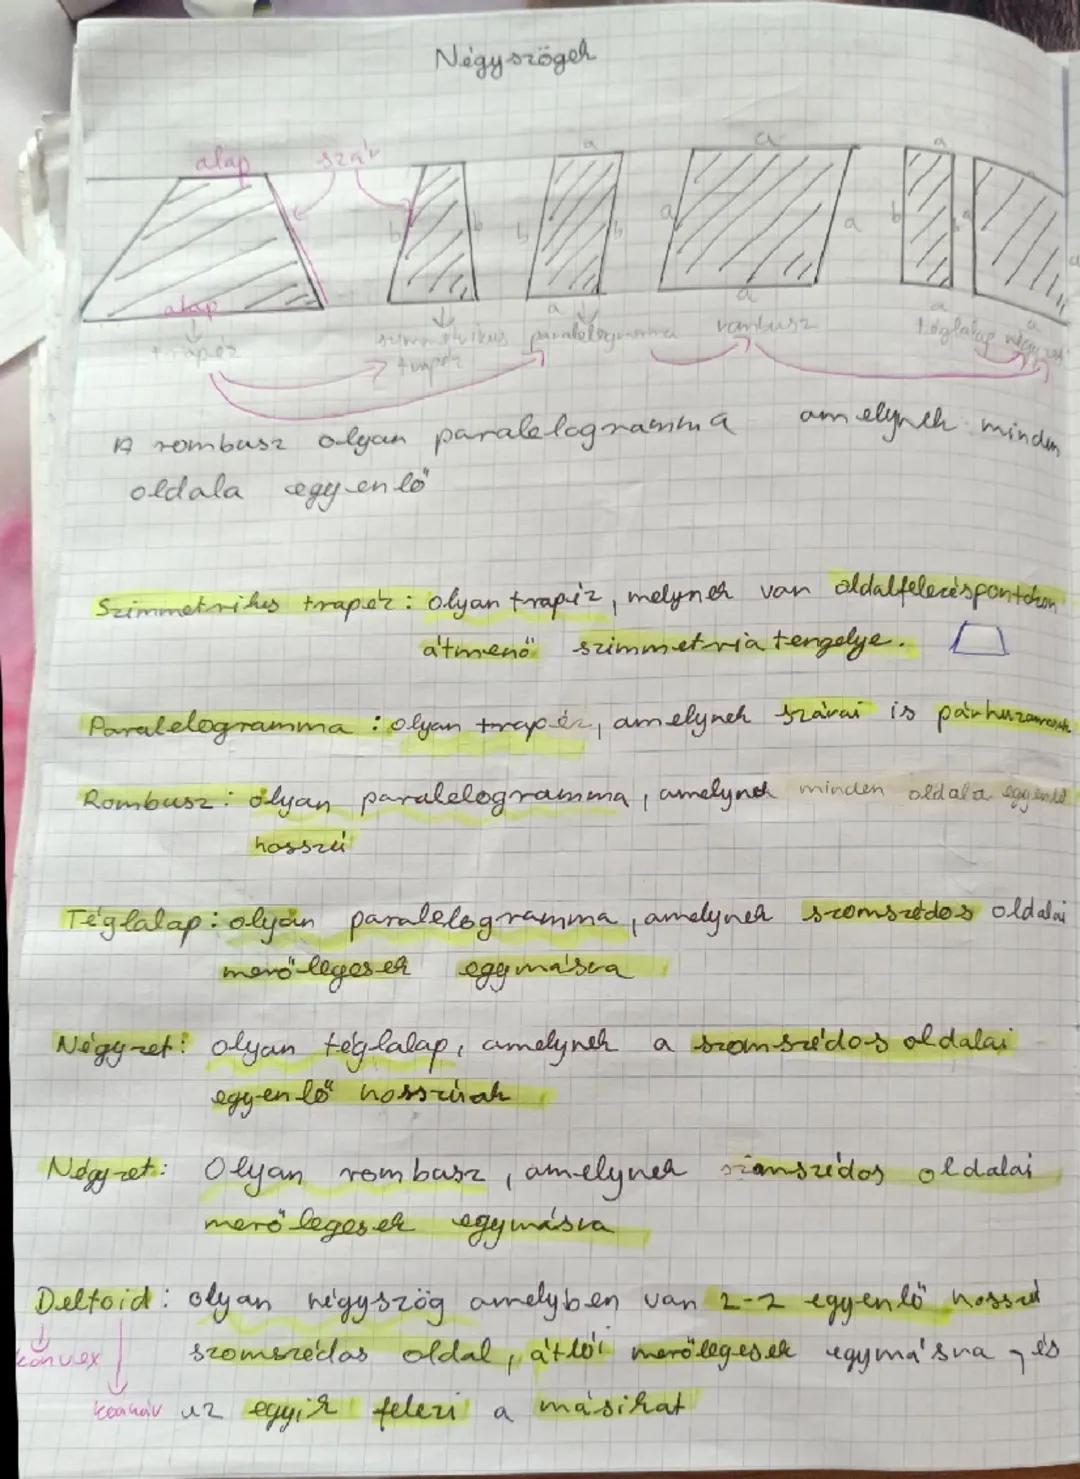 Négyszögek
alap szár a a a
b b b b a a b b a a
alap a a a a
trapéz szimmetrikus trapéz paralelogramma rombusz téglalap négyzet
A rombusz olyan paralelogramma amelynek minden
oldala egyenlő
Szimmetrikus trapéz: olyan trapéz, melynek van oldalfelezéspontokon
átmenő szimmetria tengelye.
Paralelogramma: olyan trapéz, amelynek szárai is párhuzamosak
Rombusz: olyan paralelogramma, amelynek minden oldala egyenlő
hosszú
Téglalap: olyan paralelogramma, amelynek szomszédos oldalai
merőlegesek egymásra
Négyzet: olyan téglalap, amelynek a szomszédos oldalai
egyenlő hosszúak
Négyzet: Olyan rombusz, amelynek szomszédos oldalai
merőlegesek egymásra
Deltoid: olyan négyszög amelyben van 2-2 egyenlő hosszú
konvex szomszédos oldal, átlói merőlegesek egymásra, és
konkáv az egyik felezi a másikat